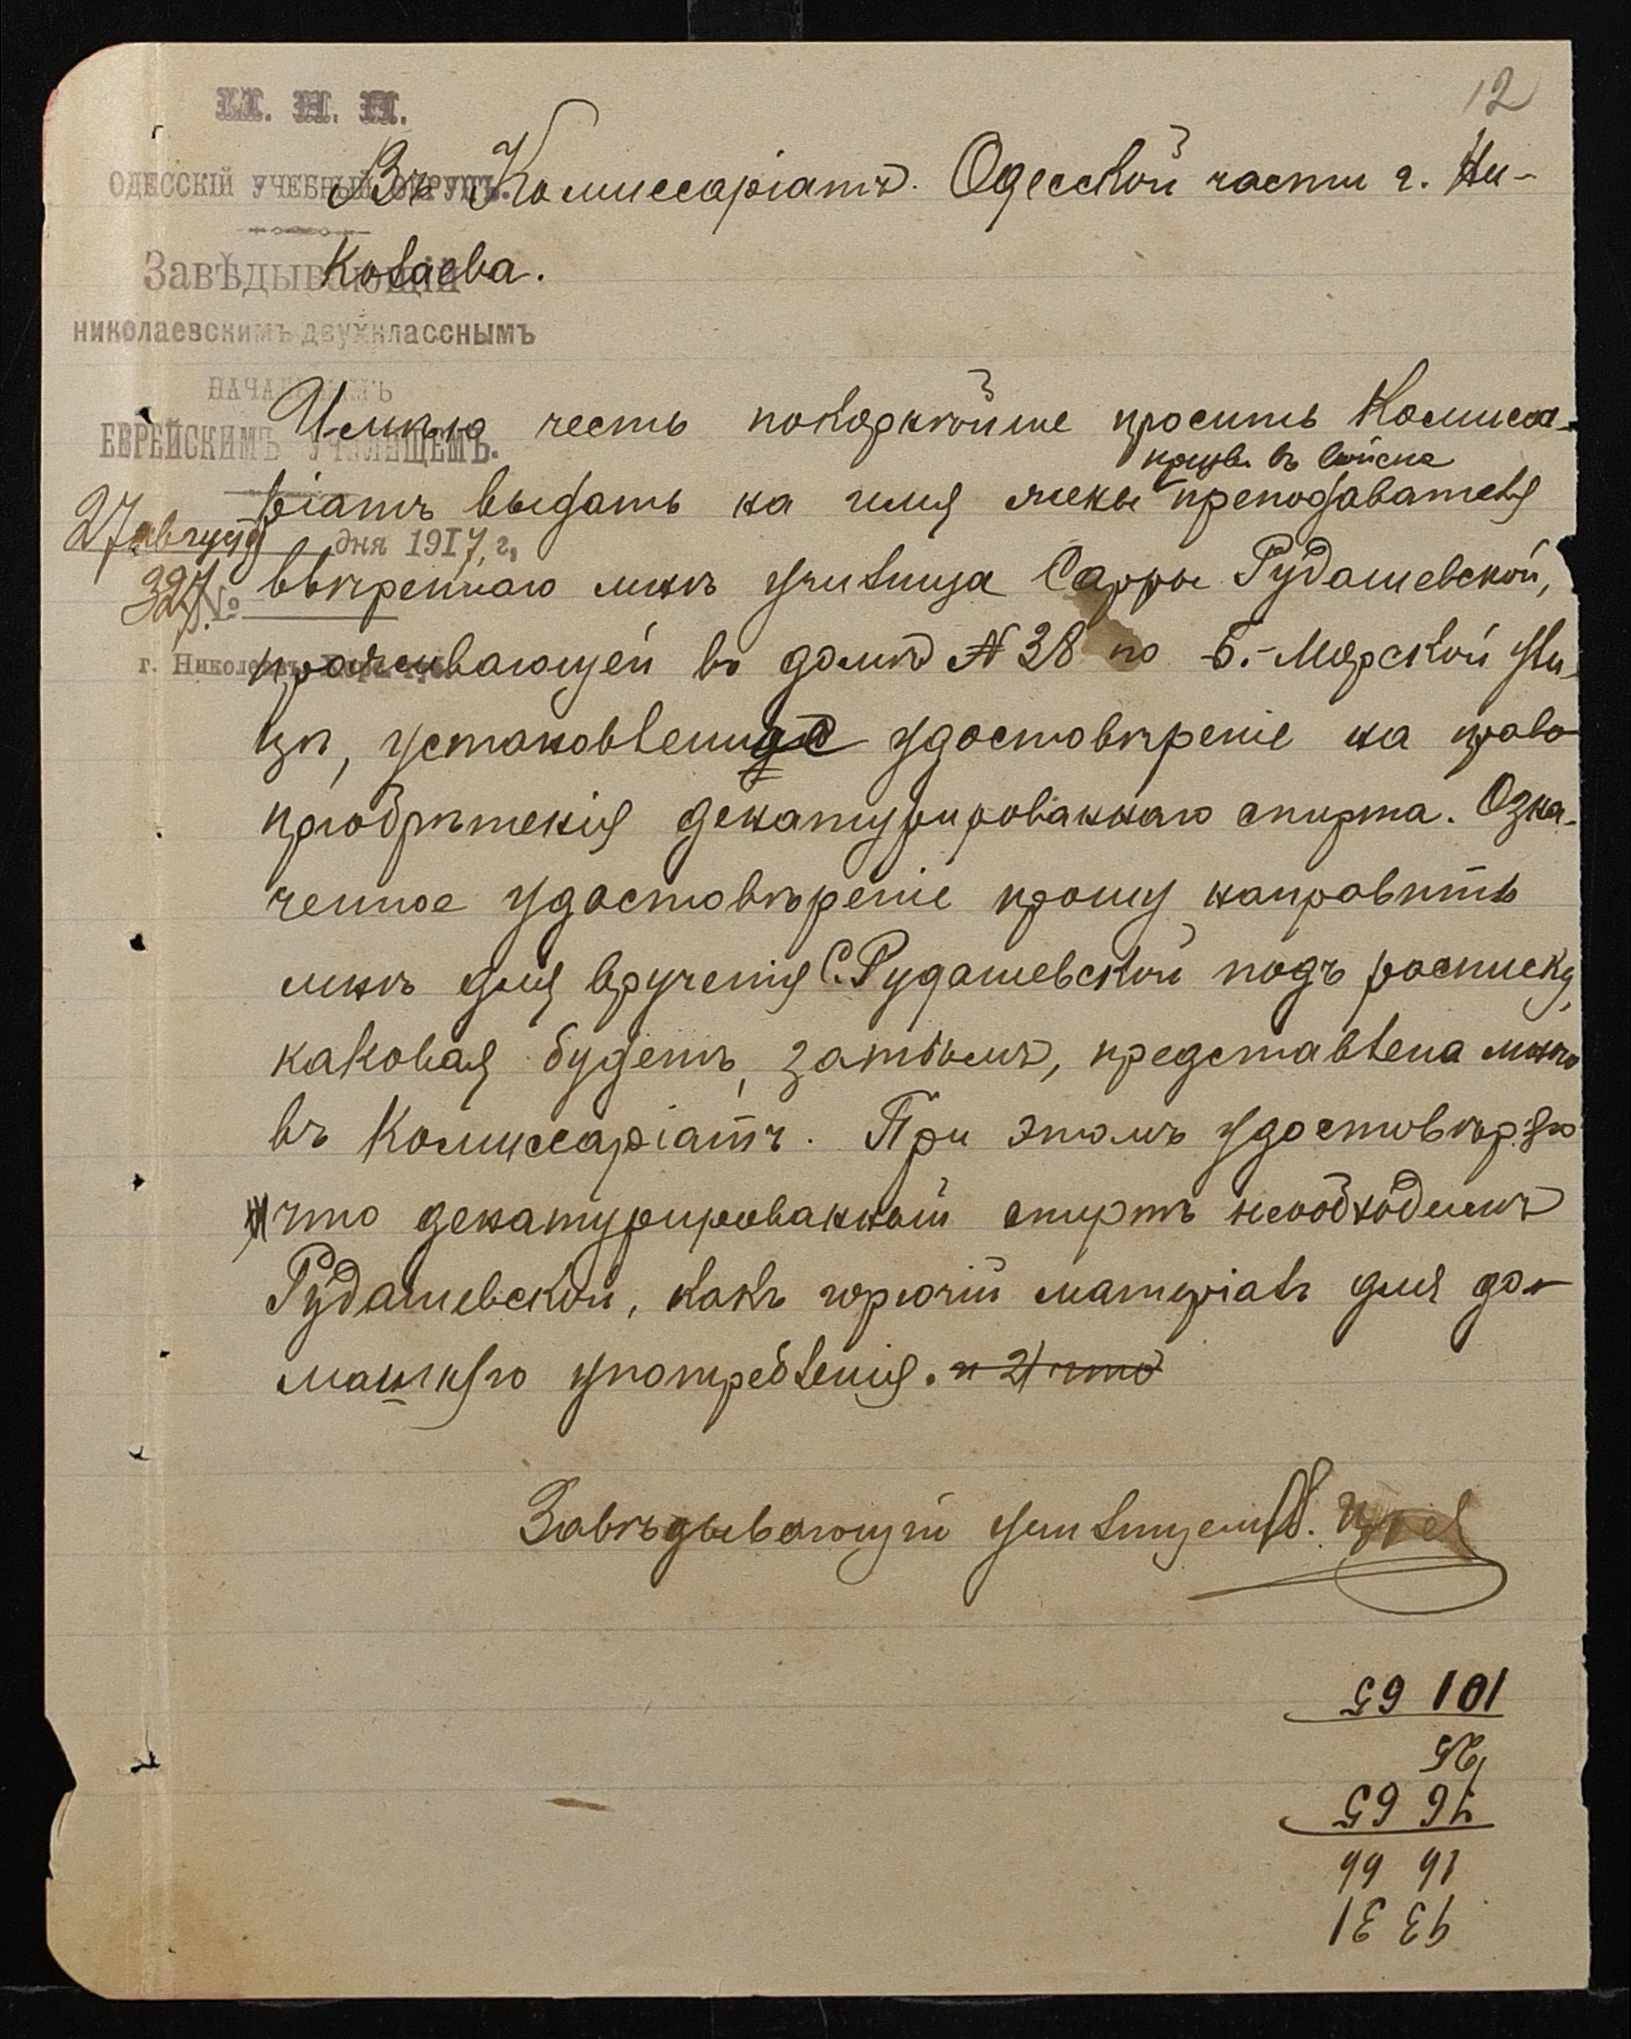 12
М. Н. П.
ОДЕССКІЙ УЧЕБНЫЙ ОКРУГЪ.
Завѣдывающій
николаевскимъ двухкласснымъ
НАЧАЛЬНЫМЪ
ЕВРЕЙСКИМЪ УЧИЛИЩЕМЪ.
27 августа дня 1917 г.
327 №
г. Николаевъ
Въ Комиссаріатъ Одесской части г. Ни-
колаева.
Имѣю честь покорнѣйше просить Комисса-
ріатъ выдать на имя жены призв. въ войска преподавателя
ввѣреннаго мнѣ училища Сарры Рудашевской,
проживающей въ домѣ № 38 по Б.-Морской ули-
цѣ, установленное удостовѣреніе на право
пріобрѣтенія денатурированнаго спирта. Озна-
ченное удостовѣреніе прошу направить
мнѣ для врученія С. Рудашевской подъ расписку,
каковая будетъ, затѣмъ, представлена мною
въ Комиссаріатъ. При этомъ удостовѣряю
что денатурированный спиртъ необходимъ
Рудашевской, какъ горючій матеріалъ для до-
машняго употребленія. и 2) что
Завѣдывающій училищемъ
101 65
25
76 65
16 66
93 31